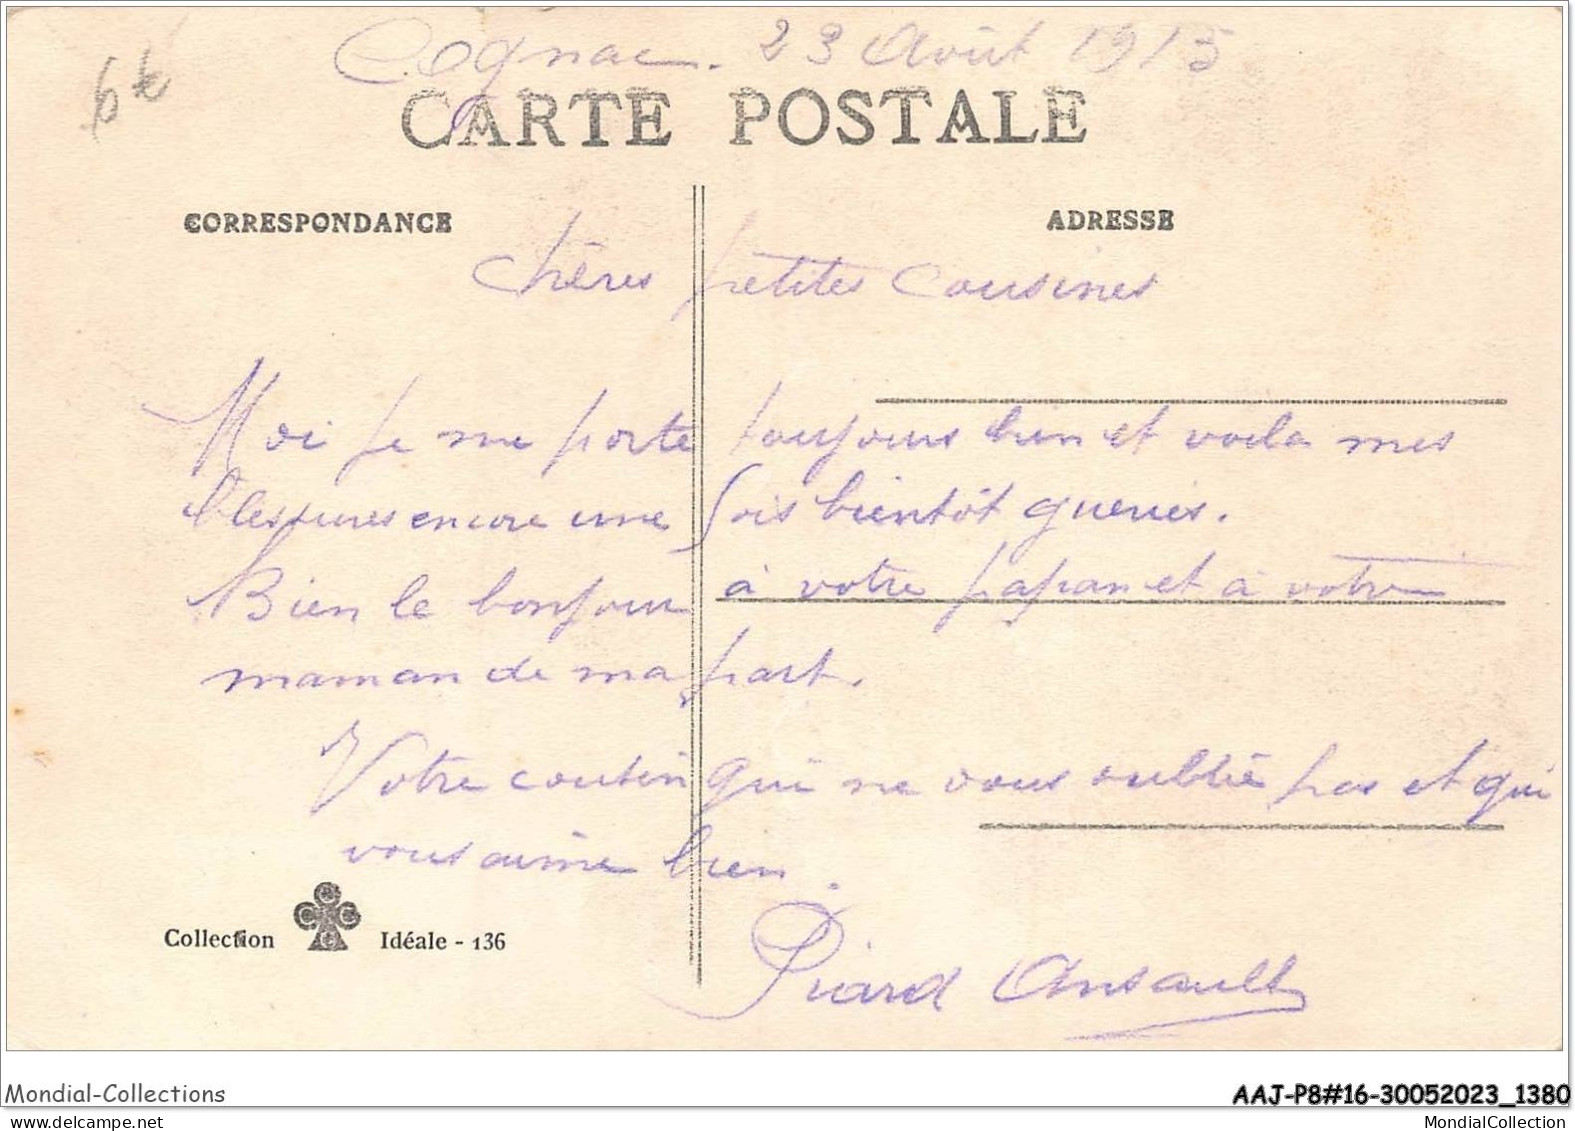 6€
Cognac. 23 Août 1915
CARTE POSTALE
CORRESPONDANCE
ADRESSE
Chères petites Cousines
Moi je me porte toujours bien et voila mes
blessures encore une fois bientôt gueries.
Bien le bonjour à votre papan et à votre
maman de ma part.
Votre cousin qui ne vous oublie pas et qui
vous aime bien.
Picard Ansault
Collection Idéale - 136
Mondial-Collections
AAJ-P8#16-30052023_1380
www.delcampe.net
MondialCollection